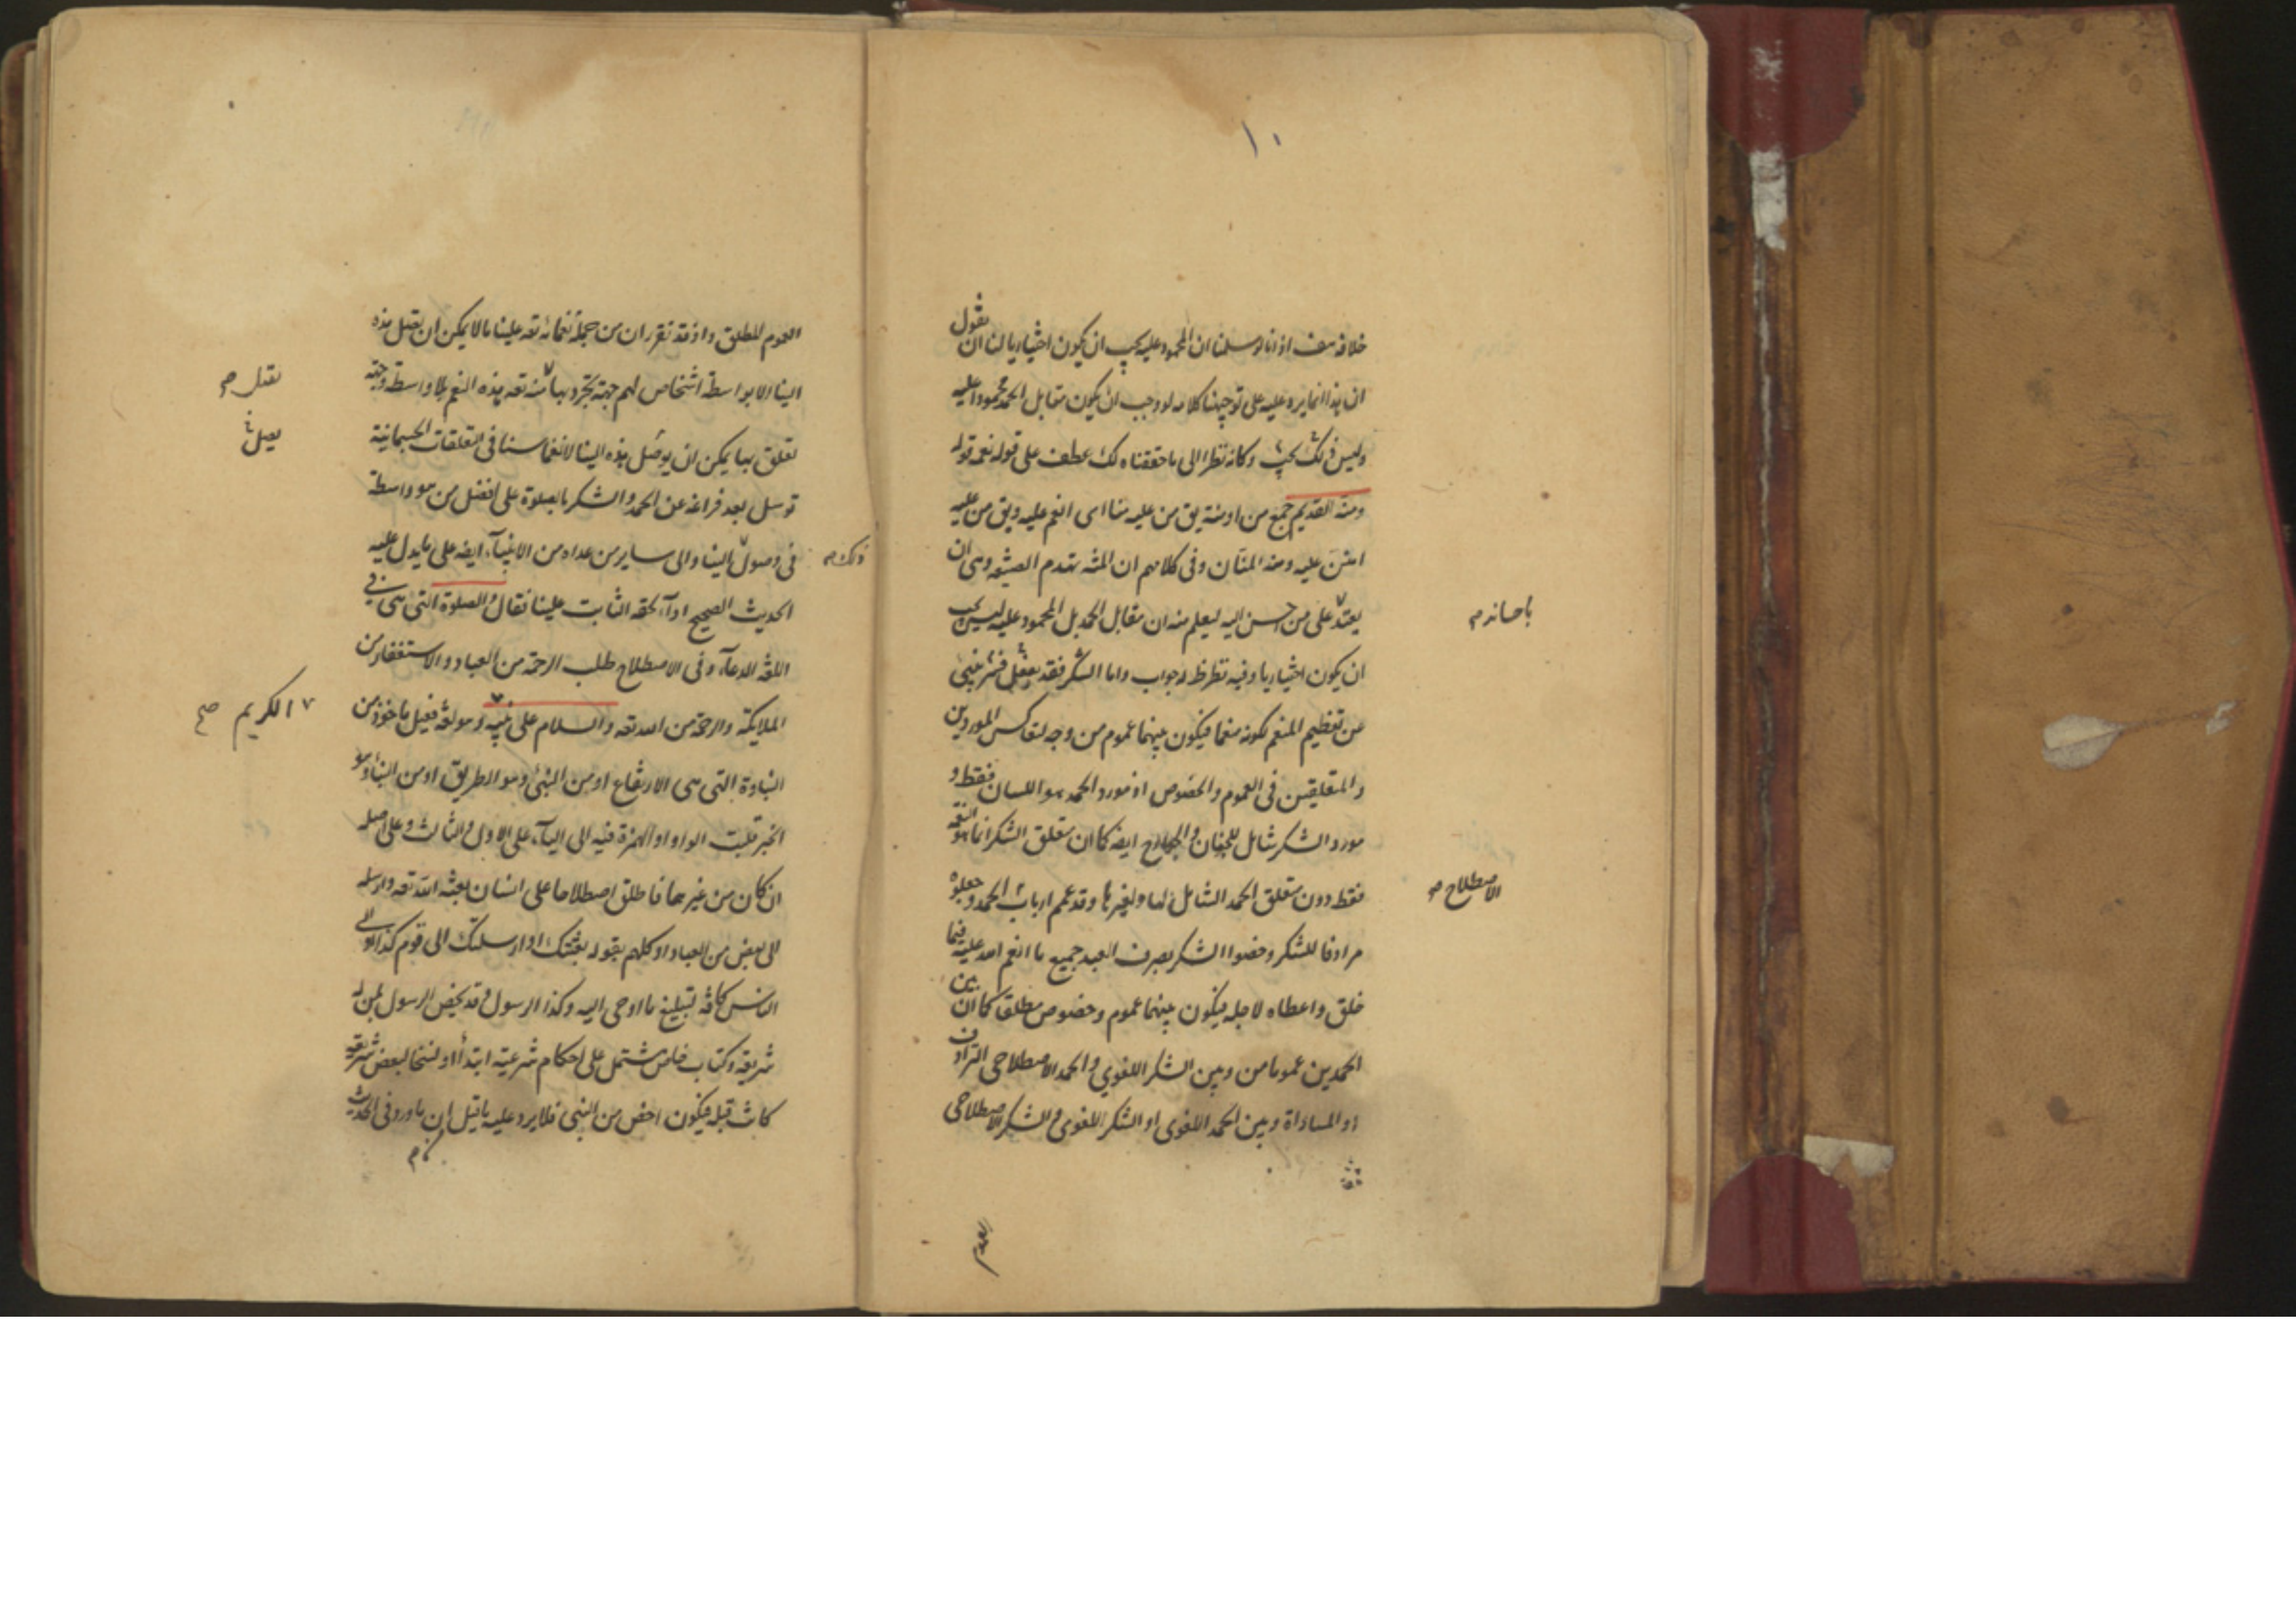 ١٠
خلافه هف اذ انا لو سلمنا ان المحمود عليه يجب ان يكون اختياريا لنا ان نقول
ان هذا انما يرد عليه على توجيهنا كلامه لو وجب ان يكون مقابل الحمد محمودا عليه
وليس ذلك بجيد وكانه نظرا الى ما حققناه لك عطف على قوله نعمه قوله
ومنه القديم جمع من او منة يق من عليه منا اى انعم عليه ويق من عليه
امتن عليه ومنه المنان وفى كلامهم ان المنة تهدم الصنيعة وهى ان
يعتد على من احسن اليه ليعلم منه ان مقابل الحمد بل المحمود عليه ليس يجب
باحسانه م
ان يكون اختياريا وفيه نظر ظ وجواب واما الشكر فقد يعقل فسر بنبئ
عن تعظيم المنعم لكونه منعما فيكون بينهما عموم من وجه لتعاكس الموردين
والمتعلقين فى العموم والخصوص اذ مورد الحمد هو اللسان فقط و
مورد الشكر شامل للجنان والجوارح ايضا كما ان متعلق الشكر انما هو النعمة
فقط دون متعلق الحمد الشامل لها ولغيرها وقد عمم ارباب الحمد وجعلوه
الاصطلاح م
مرادفا للشكر وخصوا الشكر بصرف العبد جميع ما انعم الله عليه فيما
خلق واعطاه لاجله فيكون بينهما عموم وخصوص مطلقا كما ان بين
الحمدين عموما من وبين الشكر اللغوي والحمد الاصطلاحى الترادف
او المساواة وبين الحمد اللغوى او الشكر اللغوى والشكر الاصطلاحى
العموم
العموم المطلق واذ قد تقرر ان من جملة نعمائه تعه علينا ما لا يمكن ان يقبل هذه
الينا الا بواسطة اشخاص لهم جهة تجرد بها منه تعه هذه النعم بلا واسطة وجهة
تعلق بها يمكن ان يوصل هذه الينا لانغماسنا فى التعلقات الجسمانية
توسل بعد فراغه عن الحمد والشكر بالصلوة على افضل من هو واسطة
فى وصول الينا والى ساير من عداه من الانبياء ايضه على ما يدل عليه
ذلك م
الحديث الصحيح اداء لحقه الثابت علينا فقال والصلوة التى هى فى
اللغة الدعاء وفى الاصطلاح طلب الرحمة من العباد والاستغفار من
الملايكة والرحمة من الله تعه والسلام على نبيه وهو لغة فعيل ماخوذ من
الكريم صح
النباوة التى هى الارتفاع او من النبئ وهو الطريق او من النبأ وهو
الخبر قلبت الواو او الهمزة فيه الى الياء على الاول والثالث وعلى اصله
ان كان من غيرهما فاطلق اصطلاحا على انسان بعثه الله تعه وارسله
الى بعض من العباد او كلهم بقوله بعثتك او ارسلتك الى قوم كذا او الى
الناس كافة لتبليغ ما اوحى اليه وكذا الرسول وقد يخص الرسول بمن له
شريعة وكتاب خاص مشتمل على احكام شرعية ابتدأ او لنسخ لبعض شريعة
كانت قبله فيكون اخص من النبى فلا يرد عليه ما قيل ان ما ورد فى الحديث